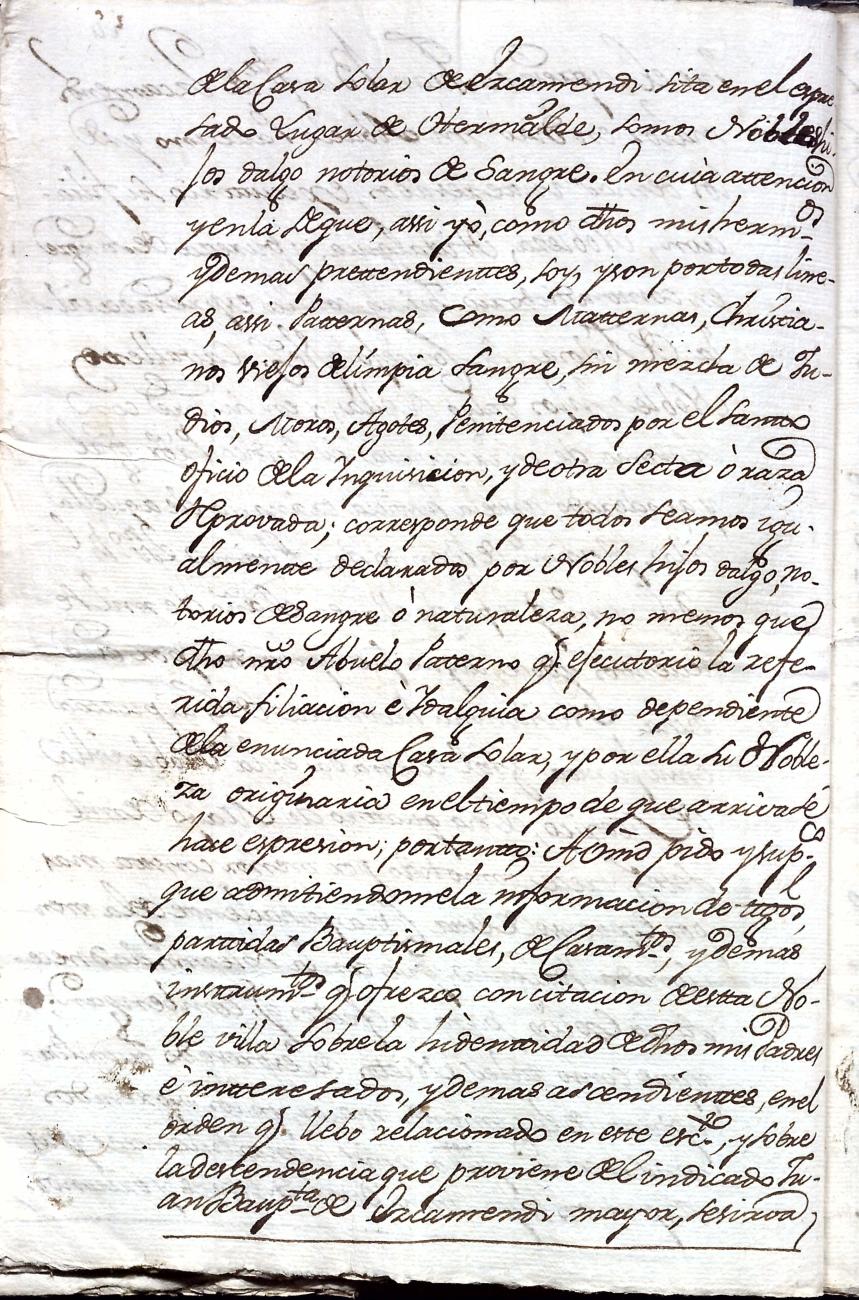 de la Casa Solar de Urcamendi sita en el expre-
sado Lugar de Otermalde, somos Nobles hi-
jos dalgo notorios de Sangre. En cuia attencion
y en la de que, assi yò, como dhos mis hermos
y demas prettendienttes, soy, y son por todas line-
as, assi Patternas, como Matternas, Christia-
nos viejos de limpia sangre, sin mezcla de Ju-
dios, Moros, Agotes, Penitenciados por el santto
oficio de la Inquisicion, y de otra Secta ò raza
Reprovada; corresponde que todos seamos igu-
almentte declarados por Nobles hijos dalgo, no-
torios de Sangre ò naturaleza, no menos que
dho nro Abuelo Paterno q ejecutorio la refe-
rida filiacion è Idalguia como dependiente
de la enunciada Casa Solar, y por ella su Noble-
za originaria en el tiempo de que arriva se
hace espresion; por tantto: A Vmd pido y supco
que admitiendome la informacion de ttgos,
parttidas Bauptismales, de Casamtos, y demas
insttrumtos q ofrezco con citacion de estta No-
ble villa sobre la hidenttidad de dhos mis Padres
è intteresados, y demas ascendienttes, en el
orden q llebo relacionado en este escto, y sobre
la descendencia que proviene del indicado Ju-
an Baupta de Urcamendi mayor, se sirva,